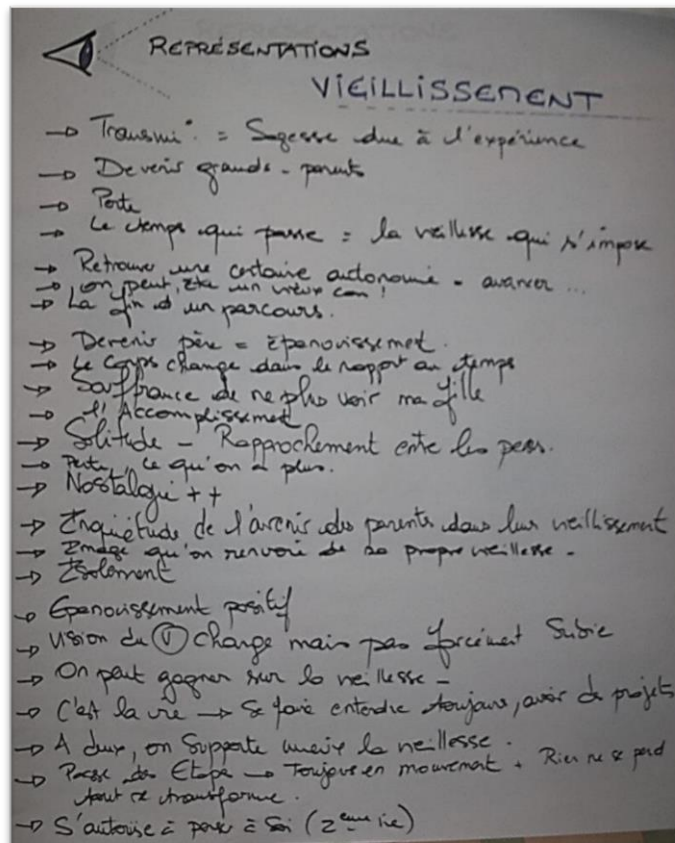 REPRÉSENTATIONS
VIEILLISSEMENT
→ Transmi° = Sagesse due à l'expérience
→ Devenir grands-parents
→ Perte
→ Le temps qui passe = la veillesse qui s'impose
→ Retrouver une certaine autonomie - avancer ...
→ on peut être un vieux con !
→ La fin d'un parcours.
→ Devenir père = épanouissement.
→ Le corps change dans le rapport au temps
→ Souffrance de ne plus voir ma fille
→ l'Accomplissement
→ Solitude - Rapprochement entre les pers.
→ Perte, ce qu'on a plus.
→ Nostalgie ++
→ Inquiétude de l'avenir des parents dans leur vieillissement
→ Image qu'on renvoie de sa propre veillesse -
→ Isolement
→ Epanouissement positif
→ Vision du V change mais pas forcément Subie
→ On peut gagner sur la veillesse -
→ C'est la vie → Se faire entendre toujours, avoir de projets
→ A deux, on supporte mieux la veillesse.
→ Passe des Etape → Toujours en mouvement + Rien ne se perd
tout se transforme.
→ S'autorise à penser à Soi (2eme vie)